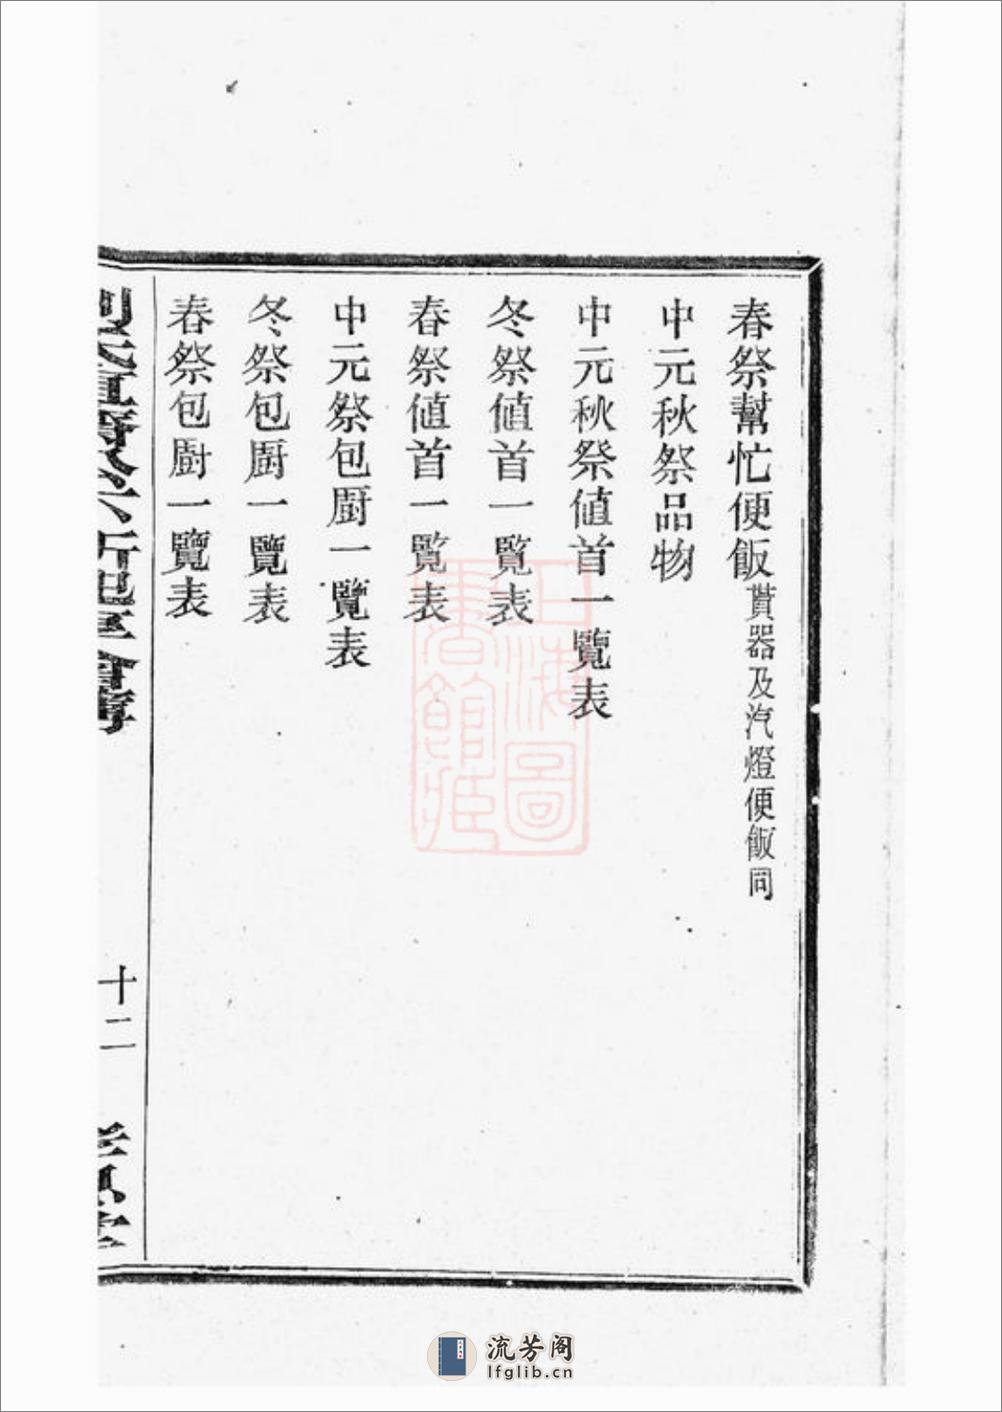 春祭幫忙便飯貰器及汽燈便飯同
中元秋祭品物
中元秋祭値首一覽表
冬祭値首一覽表
春祭値首一覽表
中元祭包厨一覽表
冬祭包厨一覽表
春祭包厨一覽表
十二
上海圖
書館藏
流芳阁
lfglib.cn